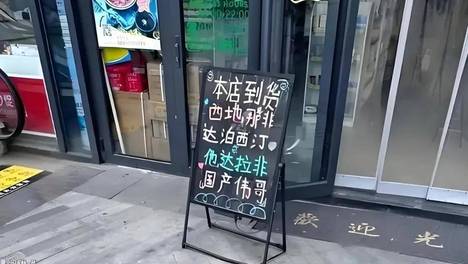 本店到货
西地那非
达泊西汀
他达拉非
国产伟哥
22:00
歡迎光